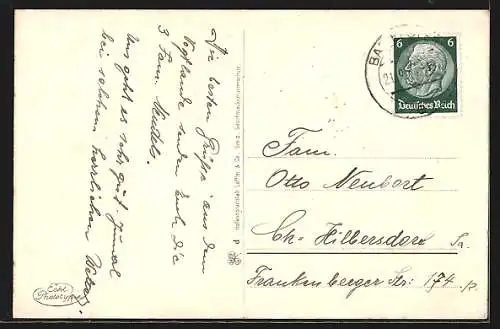 Die besten Grüße aus dem
Vogtlande senden Euch die
3 Fam.
Uns geht es sehr gut. Zumal
bei solchem herrlichen Wetter.
Echt
Photo
P
BA
6 6
Deutsches Reich
Fam.
Otto Neubert
Ch-Hilbersdorf Sa.
Frankenberger Str. 174 p.